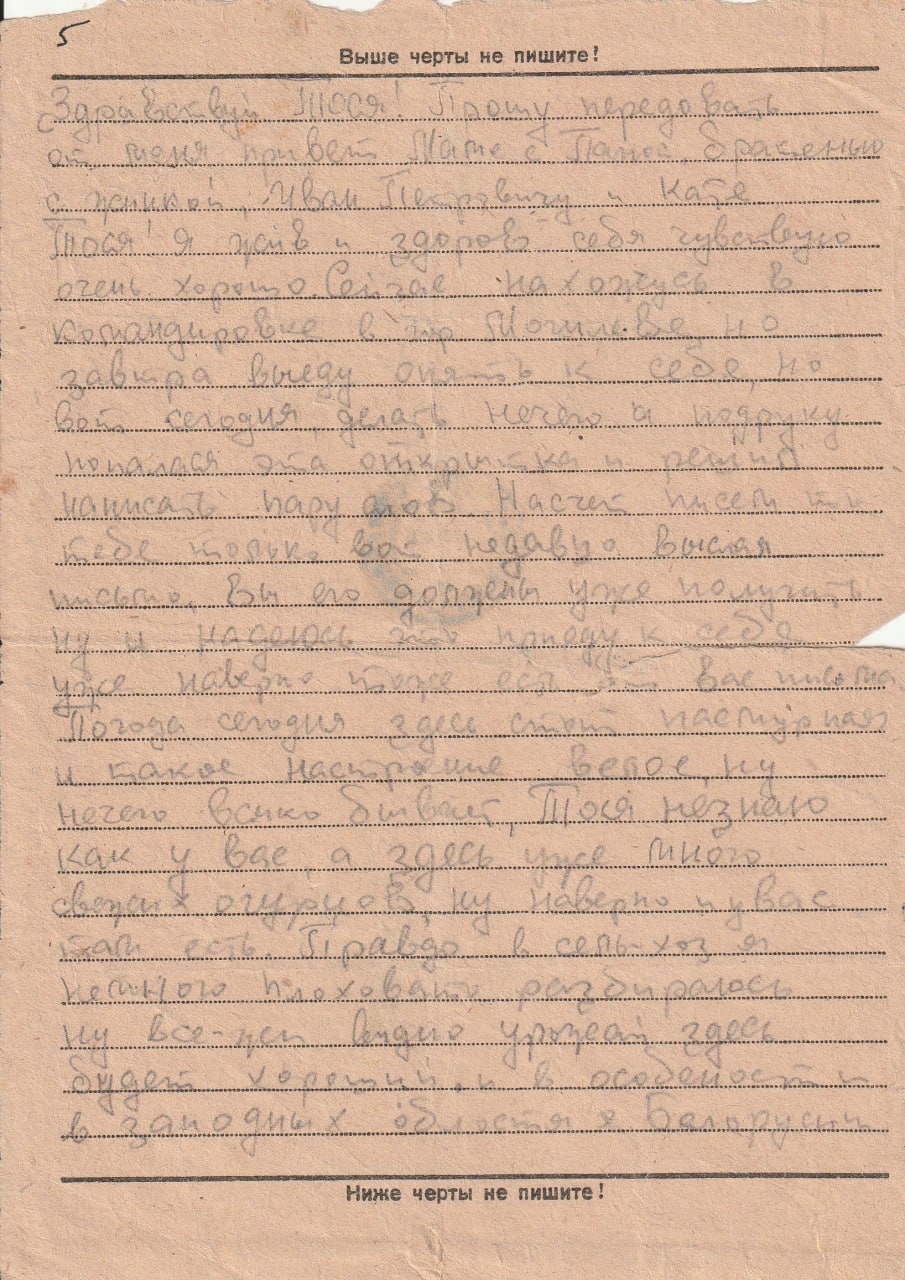 5
Выше черты не пишите!
Здравствуй Тося! Прошу передовать
от меня привет Маме с Папой, братеньи
с жинкой, Иван Петровичу и Кате.
Тося! Я жив и здоров себя чувствую
очень хорошо. Сейчас нахожусь в
командировке в гор Могилеве, но
завтра выеду опять к себе, но
вот сегодня делать нечего и подруку
попалася эта открытка и решил
написать пару слов. Насчет писем то
тебе только вот недавно выслал
письмо, Вы его должны уже получить
ну и надеюсь что приеду к себе
уже наверно тоже есть от вас письма
Погода сегодня здесь стоит пасмурная
и такое настроение
ну
нечего всяко бывает, Тося незнаю
как у вас, а здесь уже много
свежих огурцов, ну наверно и у вас
там есть. Правдо в сель-хоз я
немного плоховато разбираюсь
ну все-же видно урожай здесь
будет хороший, и в особеност и
в западных областя х Белорусии
Ниже черты не пишите!